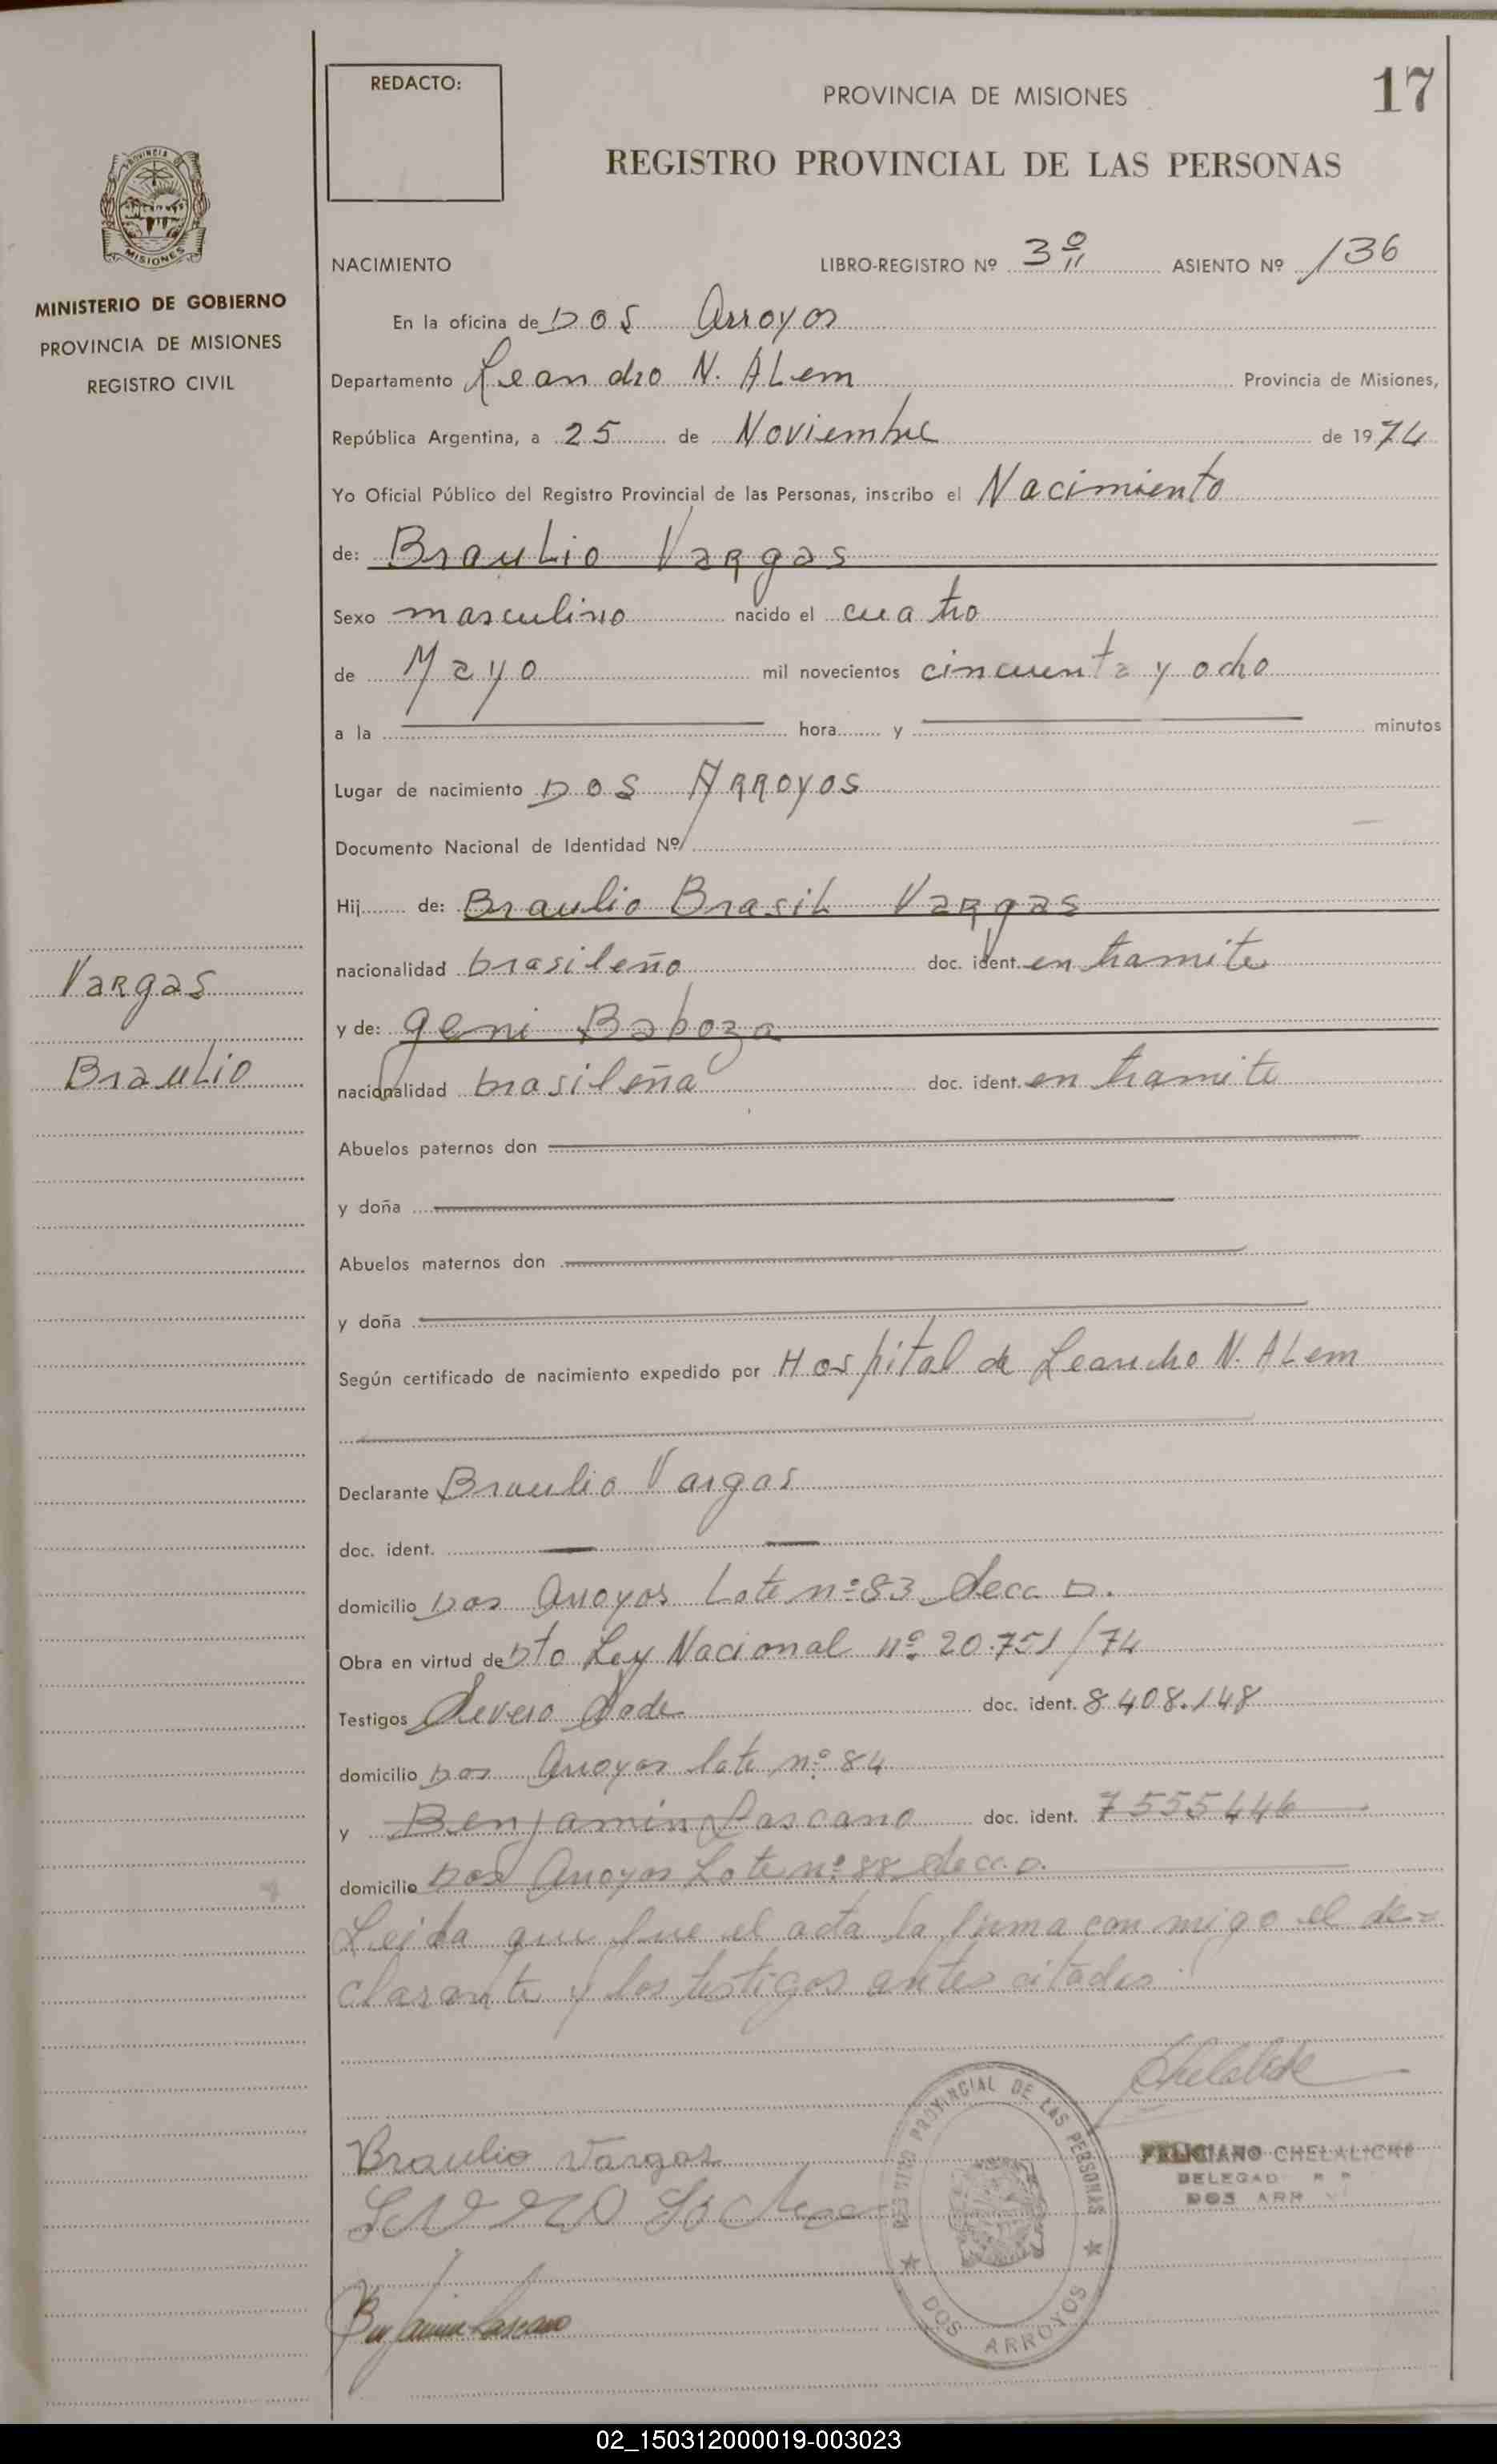 REDACTO:
PROVINCIA DE MISIONES
17
REGISTRO PROVINCIAL DE LAS PERSONAS
PROVINCIA
MISIONES
MINISTERIO DE GOBIERNO
PROVINCIA DE MISIONES
REGISTRO CIVIL
NACIMIENTO LIBRO-REGISTRO Nº 3º ASIENTO Nº 136
En la oficina de Dos Arroyos
Departamento Leandro N. ALem Provincia de Misiones,
República Argentina, a 25 de Noviembre de 1974
Yo Oficial Público del Registro Provincial de las Personas, inscribo el Nacimiento
de: Braulio Vargas
Sexo masculino nacido el cuatro
de Mayo mil novecientos cincuenta y ocho
a la hora y minutos
Lugar de nacimiento Dos Arroyos
Documento Nacional de Identidad Nº
Hij de: Braulio Brasil Vargas
nacionalidad brasileño doc. ident. en tramite
y de: geni Baboza
nacionalidad brasileña doc. ident. en tramite
Vargas
Braulio
Abuelos paternos don
y doña
Abuelos maternos don
y doña
Según certificado de nacimiento expedido por Hospital de Leandro N. ALem
Declarante Braulio Vargas
doc. ident.
domicilio Dos Arroyos Lote nº 83 Secc D.
Obra en virtud de Dto Ley Nacional nº 20.751/74
Testigos Severo doc. ident. 8.408.148
domicilio Dos Arroyos lote nº 84
y Benjamin Lascano doc. ident. 7555446
domicilio Dos Arroyos Lote nº 88 Secc. D.
Leida que fue el acta la firma con migo el de=
clarante y los testigos antes citados.
Braulio Vargas
Benjamin Lascano
REGISTRO PROVINCIAL DE LAS PERSONAS
DOS ARROYOS
FELICIANO CHELALICHE
DELEGADO R P
DOS ARR
02_150312000019-003023